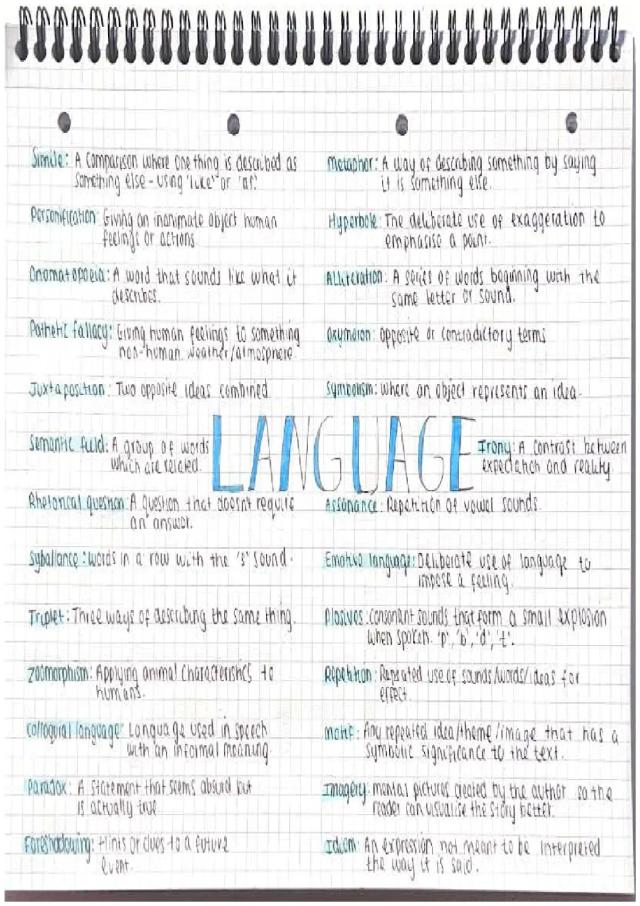 Simile: A comparison where one thing is described as
something else - using 'like' or 'as'.
Personification: Giving an inanimate object human
feelings or actions
Onomatopoeia: A word that sounds like what it
describes.
Pathetic fallacy: Giving human feelings to something
non-human. weather/atmosphere.
Juxtaposition: Two opposite ideas combined.
Semantic field: A group of words
which are related.
Rhetorical question: A question that doesn't require
an answer.
Syballance: words in a row with the 's' sound.
Triplet: Three ways of describing the same thing.
Zoomorphism: Applying animal characteristics to
humans.
Colloquial language: Language used in speech
with an informal meaning
Paradox: A statement that seems absurd but
is actually true
Foreshadowing: Hints or clues to a future
event.
LANGUAGE
Metaphor: A way of describing something by saying
it is something else.
Hyperbole: The deliberate use of exaggeration to
emphasise a point.
Alliteration: A series of words beginning with the
same letter or sound.
Oxymoron: opposite or contradictory terms
Symbolism: where an object represents an idea.
Irony: A contrast between
expectation and reality
Assonance: Repetition of vowel sounds.
Emotive language: Deliberate use of language to
impose a feeling.
Plosives: consonant sounds that form a small explosion
when spoken. 'p', 'b', 'd', 't'.
Repetition: Repeated use of sounds/words/ideas for
effect.
Motif: Any repeated idea/theme/image that has a
symbolic significance to the text.
Imagery: mental pictures created by the author so the
reader can visualise the story better.
Idiom: An expression not meant to be interpreted
the way it is said.